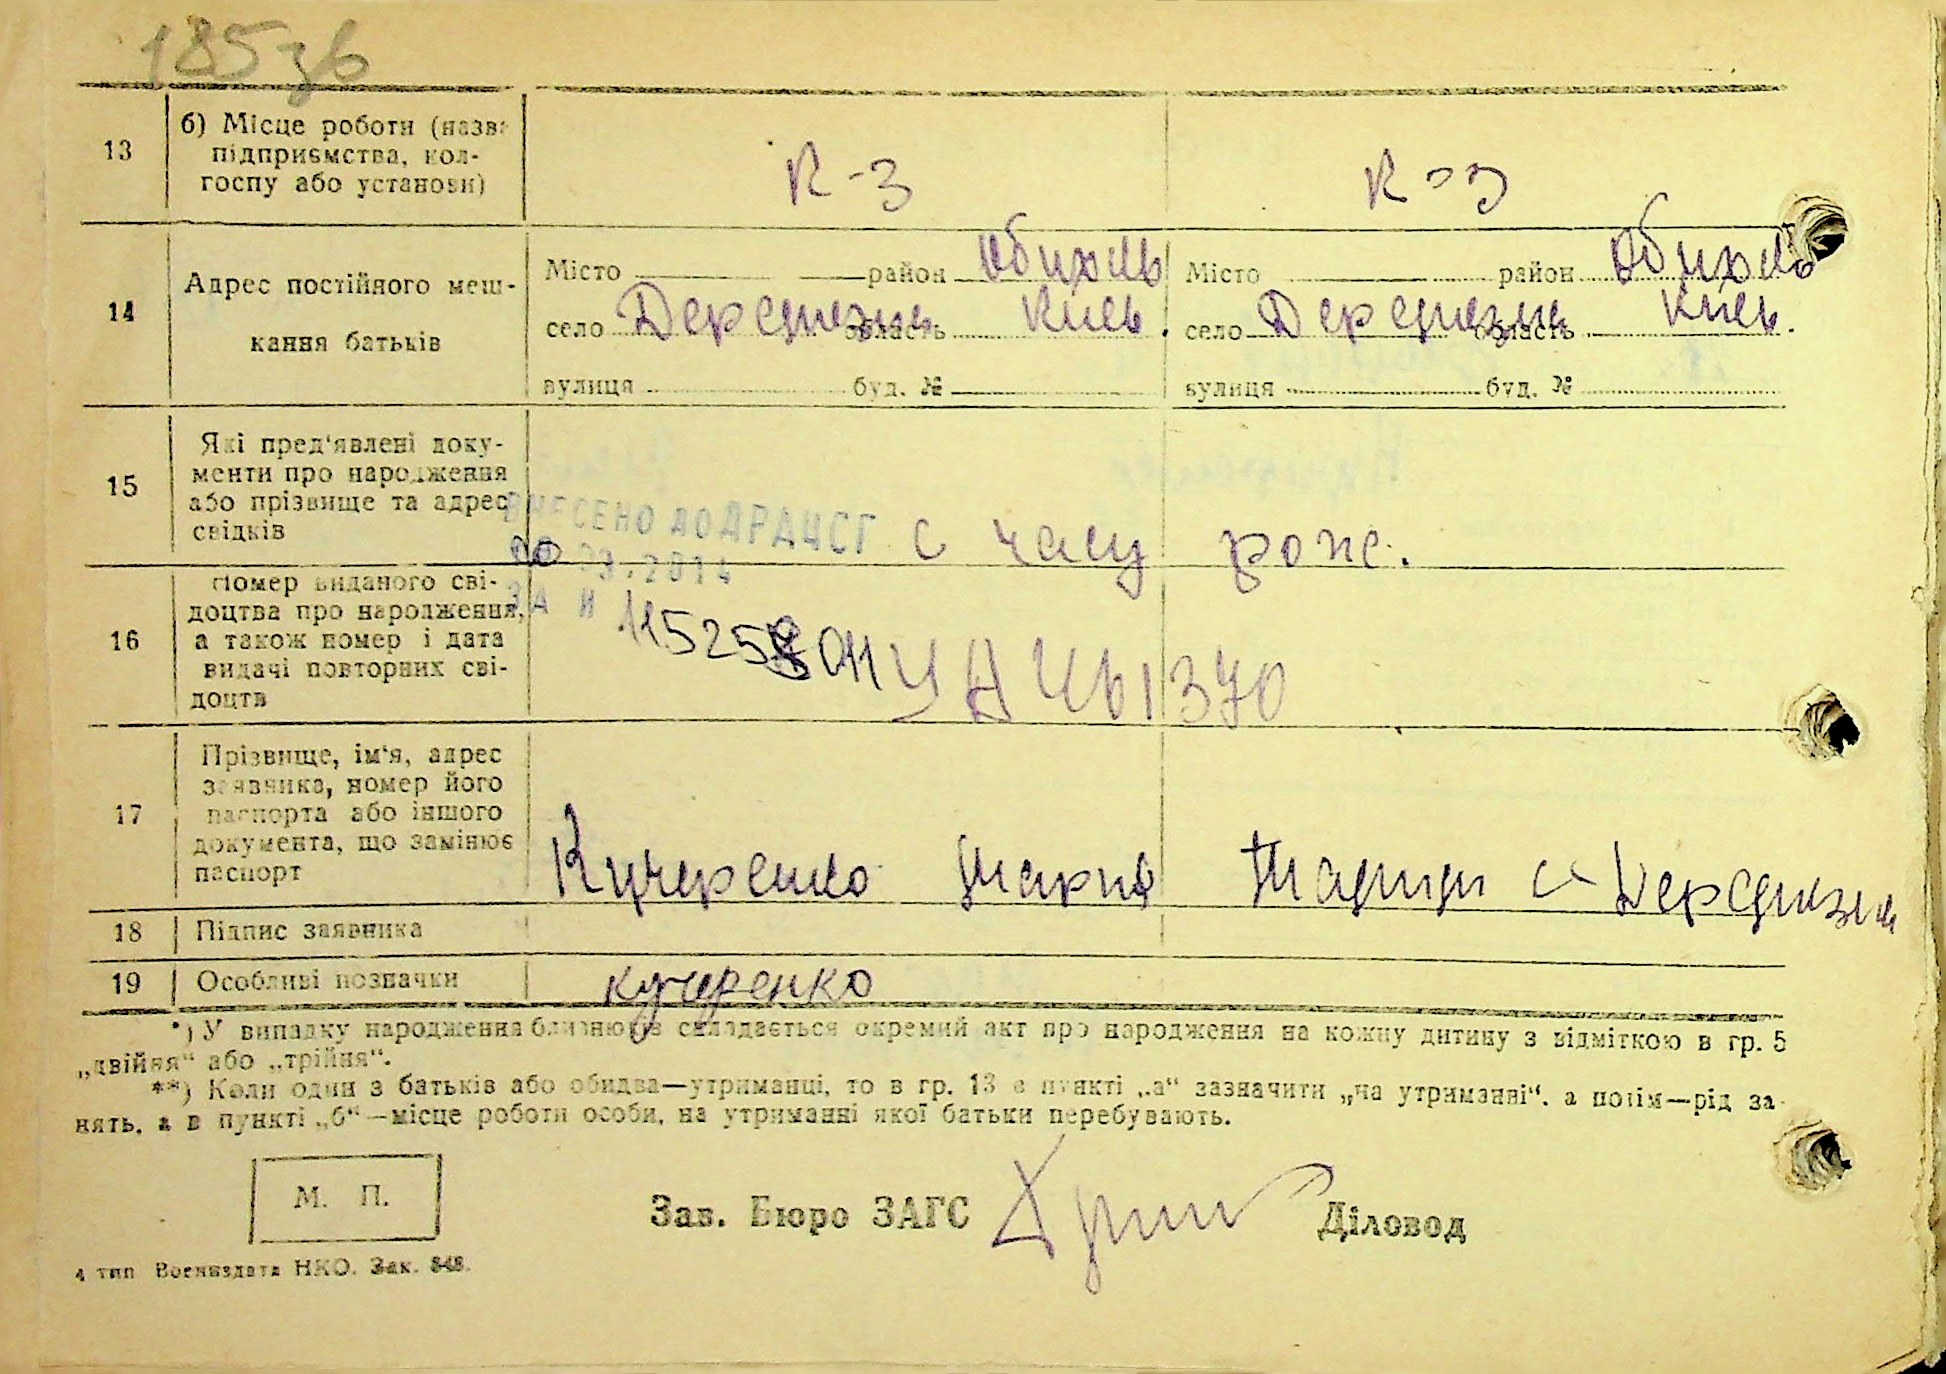 185 зв
13 б) Місце роботи (назва підприємства, колгоспу або установи) К-З К-З
14 Адрес постійного мешкання батьків
Місто район Обихів Місто район Обихів
село Деревизна область Київ. село Деревизна область Київ.
вулиця буд. № вулиця буд. №
15 Які пред'явлені документи про народження або прізвище та адрес свідків
ВНЕСЕНО ДО ДРАЦСГ с часу рож.
03.2014
ЗА №
16 Номер виданого свідоцтва про народження, а також номер і дата видачі повторних свідоцтв
УА 461370
17 Прізвище, ім'я, адрес заявника, номер його паспорта або іншого документа, що замінює паспорт
Кучеренко Марія
18 Підпис заявника
19 Особливі позначки кучеренко
*) У випадку народження близнюків складається окремий акт про народження на кожну дитину з відміткою в гр. 5
„двійня“ або „трійня“.
**) Коли один з батьків або обидва—утриманці, то в гр. 13 в пункті „а“ зазначити „на утриманні“, а потім—рід за-
нять, а в пункті „б“—місце роботи особи, на утриманні якої батьки перебувають.
М. П.
Зав. Бюро ЗАГС Діловод
4 тип Воениздата НКО. Зак. 848.